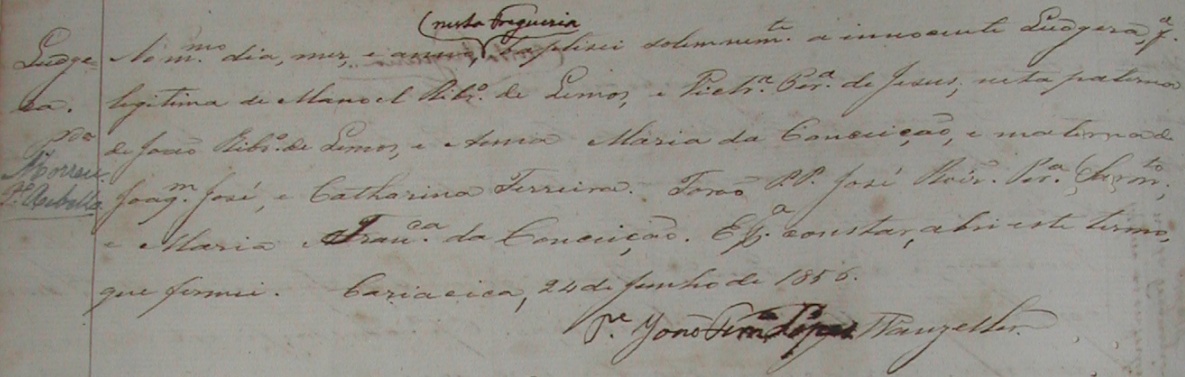 (nesta Freguesia
Ludge
ra.
pda
Morreu.
No m.mo dia, mez, e anno, baptisei solemnem.te a innocente Ludgera, f.a
legitima de Manoel Ribr.o de Lemos, e Per.a de Jesus, neta paterna
de João Ribr.o de Lemos, e Anna Maria da Conceição, e materna de
Joaq.m José, e Catharina Ferreira. Forão P.P. José Roiz. Per.a
e Maria Fran.ca da Conceição. E p.a constar, abri este termo,
que firmei. Cariacica, 24 de Junho de 1856.
P.e João Wanzeller.